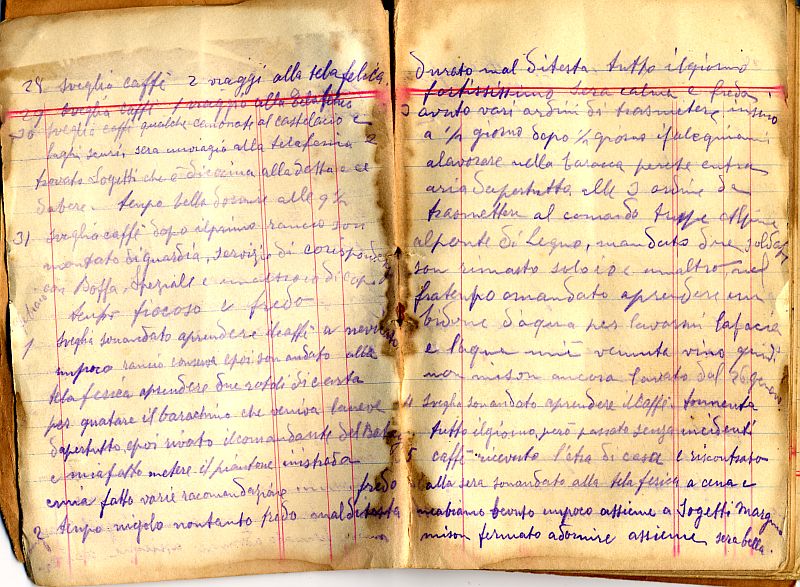 28 sveglia caffè 2 viaggi alla telafelica
29 sveglia caffè 1 viaggio alla
30 sveglia caffè qualche canonate al castelacio e
laghi scuri, sera unviagio alla telaferica e
trovato Sogetti che à da
dabere. tempo bello dossare alle 9½
31 sveglia caffè dopo ilprimo rancio son
montato diguardia, servizio di
con Boffa, Speziale e unaltro
tempo fiocoso e fredo
1 sveglia sonandato aprendere ilcaffè a nevicato
unpoco rancio conserva epoi son andato alla
telaferica aprendere due rotoli di carta
per quatare il barachino che veniva laneve
dapertutto, epoi rivato il comandante del
e mia fatto metere il piantone inistrada
emia fatto varie racomandazione
fredo
2 tempo nigolo nontanto fredo maldetesta
durato mal ditesta tutto ilgiorno
fortissimo sera calma e freda
3 avuto vari ardini di trasmetere, insino
a ½ giorno dopo ½ giorno
alavorare nella baracca perche entra
aria dapertutto, alle 3 ordine de
trasmettere al comando truppe Alpine
alponte di Legno, mandato due soldati
son rimasto soloio e unaltro, nel
fratenpo omandato aprendere un
bidone d'aqua per lavarmi lafacia
e laqua mié vennuta vino quindi
non mison ancora lavato dal 26
4 sveglia sonandato aprendere ilcaffè tormenta
tutto ilgiorno, però passato senza incidenti
5 caffè ricevuto l'etra di casa e riscontrato
alla sera sonandato alla telaferica a cena e
neabiamo bevuto unpoco assieme a Sogetti
mison fermato adormire assieme sera bella.